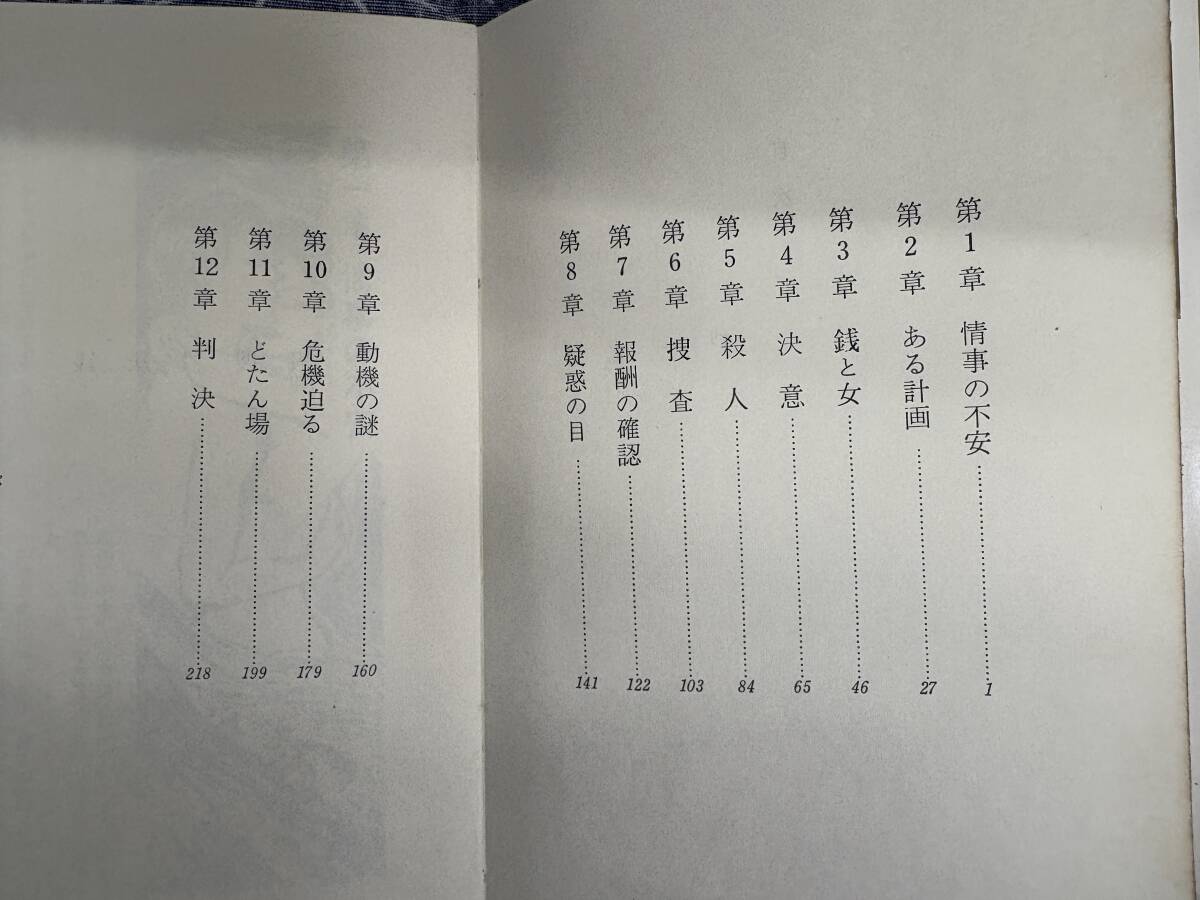 第1章 情事の不安……………………1
第2章 ある計画……………………27
第3章 銭と女……………………46
第4章 決意……………………65
第5章 殺人……………………84
第6章 捜査……………………103
第7章 報酬の確認……………………122
第8章 疑惑の目……………………141
第9章 動機の謎……………………160
第10章 危機迫る……………………179
第11章 どたん場……………………199
第12章 判決……………………218